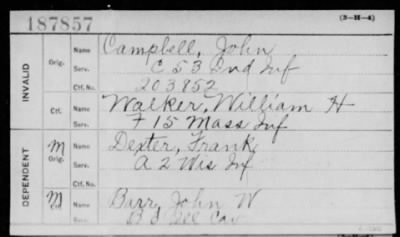 187857
(3-H-4)
INVALID
Orig.
Name Campbell, John
Serv. C 53 Ind Inf
Ctf. No. 203852
Ctf.
Name Walker, William H
Serv. F 15 Mass Inf
DEPENDENT
M
Orig.
Name Dexter, Frank
Serv. A 2 Wis Inf
Ctf. No.
M
Ctf.
Name Barr, John W
Serv. Ill Cav